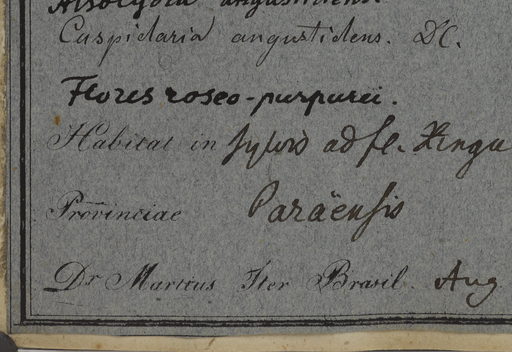 angustidens.
Cuspidaria angustidens. DC.
Flores roseo-purpurei.
Habitat in sylvis ad fl. Xingu
Provinciae Paraënsis
Dr Martius Iter Brasil. Aug